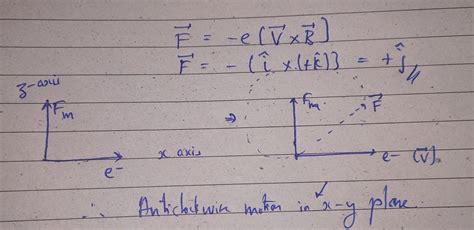 F⃗ = -e(V⃗ × B⃗)
F⃗ = -{î × (+k̂)} = +ĵ //
z-axis
Fm ⇒ Fm F⃗
x axis
e- e- (V⃗).
∴ Anticlockwise motion in x-y plane.